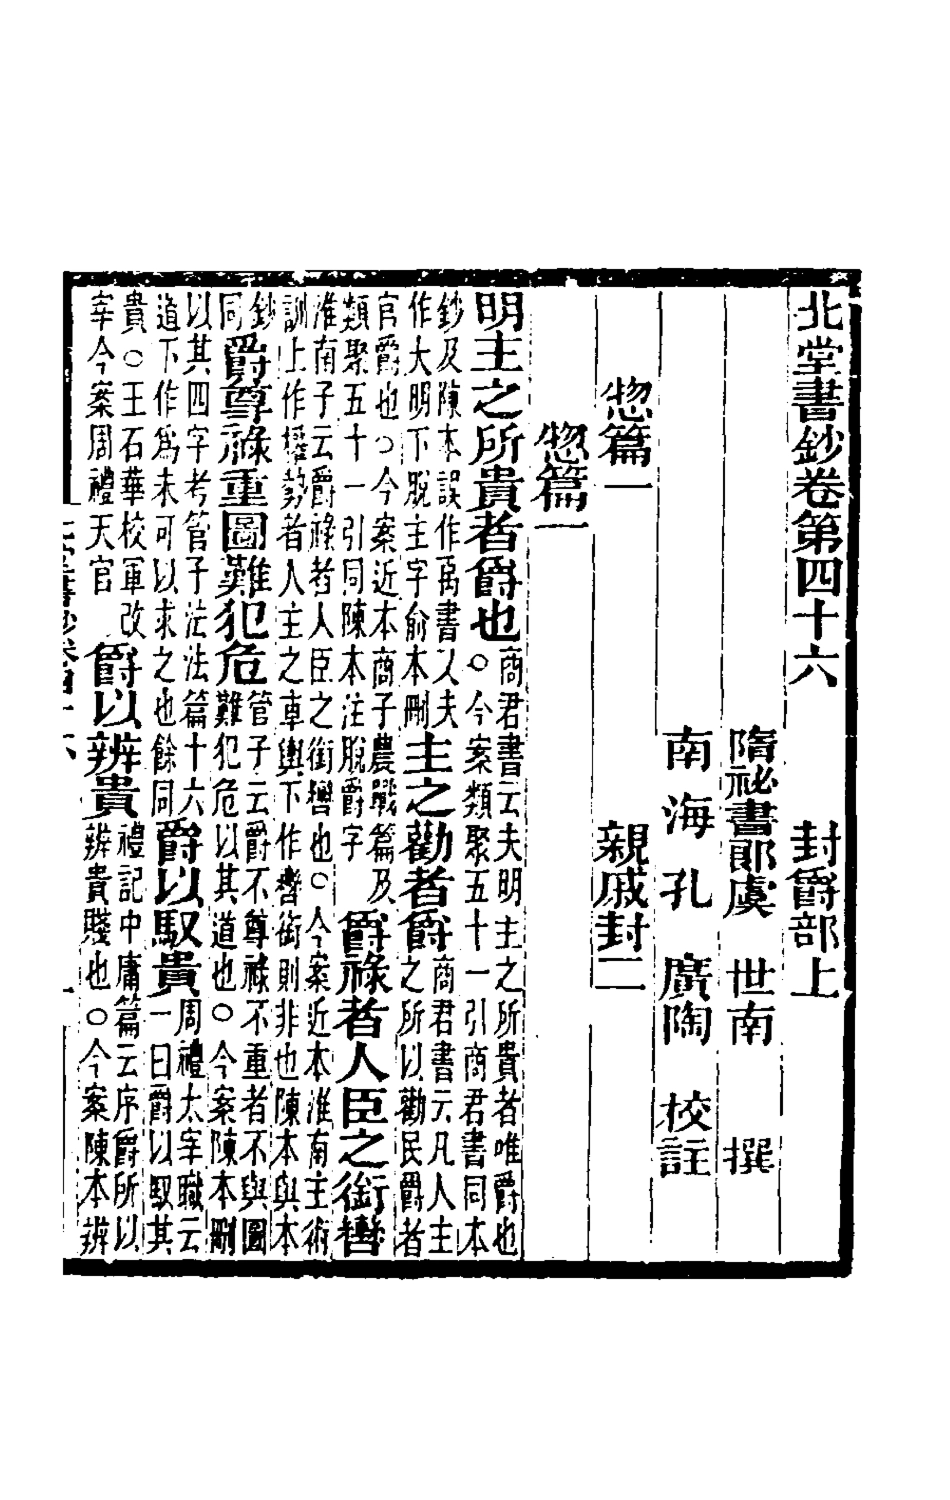 北堂書鈔卷第四十六　封爵部上
隋祕書郎虞　世南　撰
南海孔　廣陶　校註
惣篇一　親戚封二
惣篇一
明主之所貴者爵也　商君書云夫明主之所貴者唯爵也○今案類聚五十一引商君書同本
鈔及陳本誤作萬書又夫作大明下脫主字俞本刪　主之勸者爵　商君書云凡人主之所以勸民爵者
官爵也○今案近本商子農戰篇及類聚五十一引同陳本注脫爵字　爵祿者人臣之銜轡
淮南子云爵祿者人臣之銜轡也○今案近本淮南主術訓上作權勢者人主之車輿下作轡銜則非也陳本與本
鈔同　爵尊祿重圖難犯危　管子云爵不尊祿不重者不與圖難犯危以其道也○今案陳本刪
以其四字考管子法法篇十六道下作爲未可以求之也餘同　爵以馭貴　周禮太宰職云一曰爵以馭其
貴○王石華校軍改宰今案周禮天官　爵以辨貴　禮記中庸篇云序爵所以辨貴賤也○今案陳本辨